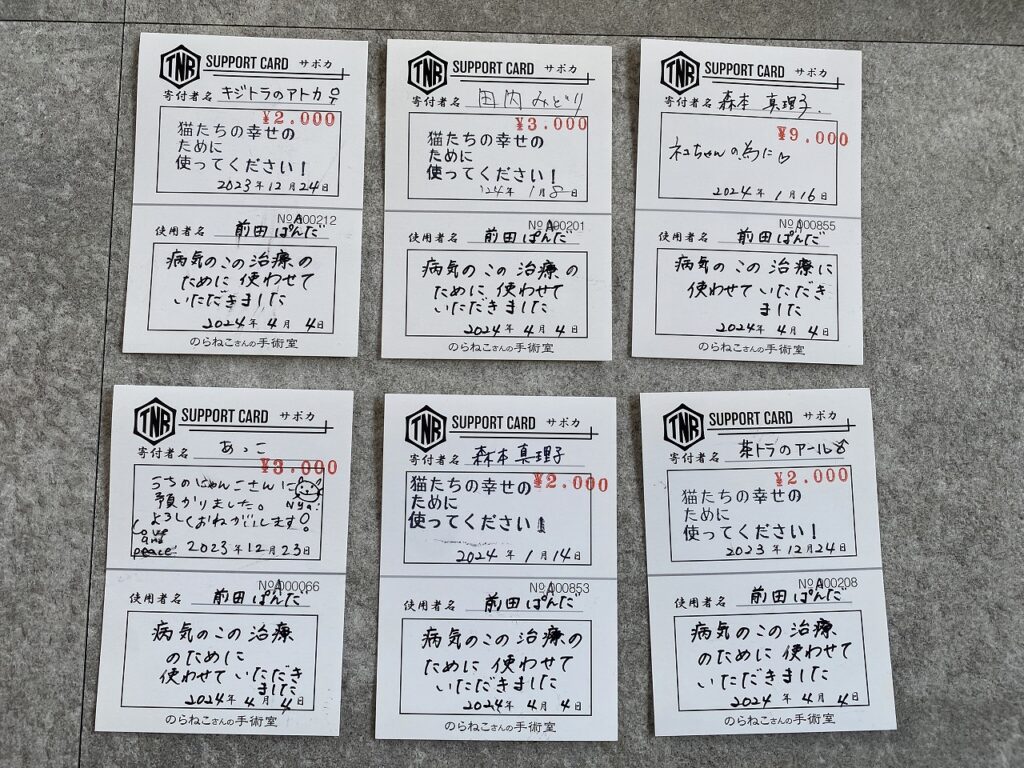 TNR SUPPORT CARD サポカ
寄付者名 キジトラのアトカ♀
¥2.000
猫たちの幸せの
ために
使ってください!
2023年12月24日
No A000212
使用者名 前田ぱんだ
病気のこの治療の
ために使わせて
いただきました
2024年4月4日
のらねこさんの手術室
TNR SUPPORT CARD サポカ
寄付者名 田内みどり
¥3.000
猫たちの幸せの
ために
使ってください!
'24年1月8日
No A000201
使用者名 前田ぱんだ
病気のこの治療の
ために使わせて
いただきました
2024年4月4日
のらねこさんの手術室
TNR SUPPORT CARD サポカ
寄付者名 森本真理子
¥9.000
ネコちゃんの為に♡
2024年1月16日
No A000855
使用者名 前田ぱんだ
病気のこの治療に
使わせていただき
ました
2024年4月4日
のらねこさんの手術室
TNR SUPPORT CARD サポカ
寄付者名 あっこ
¥3.000
うちのにゃんこさんに
預かりました。
Nya!
よろしくおねがいします!
Love
and
peace!
2023年12月23日
No A000066
使用者名 前田ぱんだ
病気のこの治療
のために
使わせていただき
ました
2024年4月4日
のらねこさんの手術室
TNR SUPPORT CARD サポカ
寄付者名 森本真理子
¥2.000
猫たちの幸せの
ために
使ってください!
2024年1月14日
No A000853
使用者名 前田ぱんだ
病気のこの治療の
ために使わせて
いただきました
2024年4月4日
のらねこさんの手術室
TNR SUPPORT CARD サポカ
寄付者名 茶トラのアール♂
¥2.000
猫たちの幸せの
ために
使ってください!
2023年12月24日
No A000208
使用者名 前田ぱんだ
病気のこの治療
のために使わせて
いただきました
2024年4月4日
のらねこさんの手術室